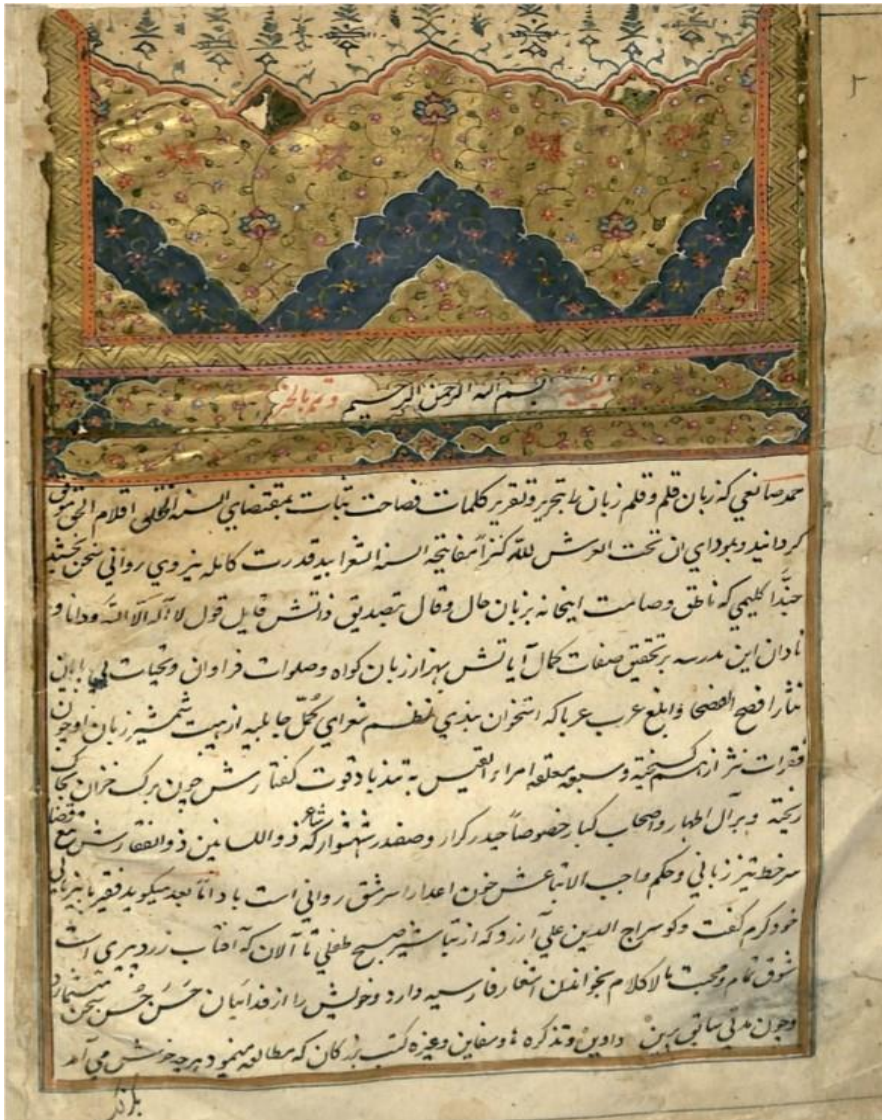 بسم الله الرحمن الرحیم وتمم بالخیر
حمد صانعی که زبان قلم و قلم زبان را بتحریر و تقریر کلمات فصاحت بمقتضای السنة الخلق اقلام الحق
کردانید و بمودای ان تحت العرش لله کنزاً مفاتیحه السنة الشعرا بید قدرت کامله نیروی روانی سخن بخشید
حبذا کلیمی که ناطق و صامت اینخانه بزبان حال و قال بتصدیق ذاتش قایل قول لا اله الا الله و دانا و
نادان این مدرسه بر تحقیق صفات کمال آیاتش بهزار زبان کواه وصلوات فراوان و تحیات بی پایان
نثار افصح الفصحا و ابلغ عرب عربا که استخوان بندی نظم شعرای جاهلیه از هیبت شمشیر زبان او چون
فقرات نثر از هم کسیخته و سبعه معلقه امراء القیس به تندباد قوت کفتارش چون برک خزان بخاک
ریخته و بر آل اطهار و اصحاب کبار خصوصاً حیدر کرار و صفدر شهسوار که شاعر ذو اللسانین ذوالفقارش مع قضا
سر خط تیز زبانی و حکم واجب الاتباعش خون اعدا را سرمشق روانی است باد اما بعد میکوید فقیر
خود کرم کفت و کو سراج الدین علی آرزو که از تباشیر صبح طفلی تا آلان که آفتاب زرد پیری است
شوق تمام و محبت بالاکلام بخواندن اشعار فارسیه دارد و خویش را از فدائیان حسن سخن میشمارد
و چون مدتی سابق برین دواوین و تذکره ها و سفاین و غیره کتب بزرکان که مطالعه مینمود هرچه خوش می آمد